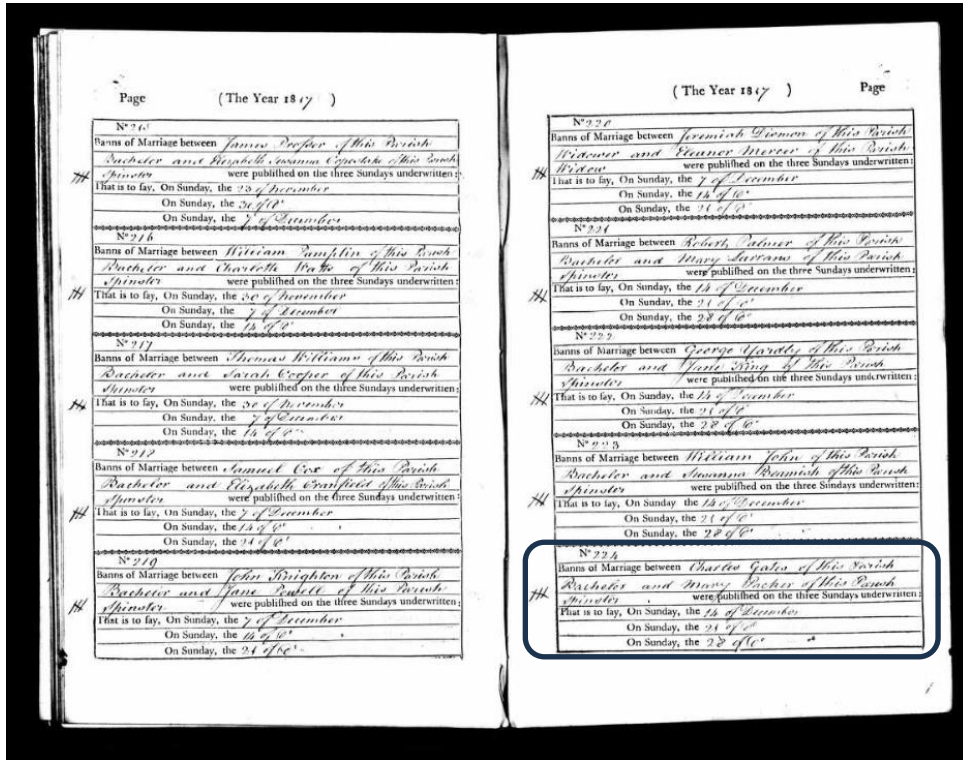 Page (The Year 1817)
No 215
Banns of Marriage between James Prosser of this Parish
Bachelor and Elizabeth Susanna Copestake of this Parish
Spinster were published on the three Sundays underwritten:
That is to say, On Sunday, the 23 of November
On Sunday, the 30 of Do
On Sunday, the 7 of December
No 216
Banns of Marriage between William Pamplin of this Parish
Bachelor and Charlotte Watts of this Parish
Spinster were published on the three Sundays underwritten:
That is to say, On Sunday, the 30 of November
On Sunday, the 7 of December
On Sunday, the 14 of Do
No 217
Banns of Marriage between Thomas Williams of this Parish
Bachelor and Sarah Cooper of this Parish
Spinster were published on the three Sundays underwritten:
That is to say, On Sunday, the 30 of November
On Sunday, the 7 of December
On Sunday, the 14 of Do
No 218
Banns of Marriage between Samuel Cox of this Parish
Bachelor and Elizabeth Cranfield of this Parish
Spinster were published on the three Sundays underwritten:
That is to say, On Sunday, the 7 of December
On Sunday, the 14 of Do
On Sunday, the 21 of Do
No 219
Banns of Marriage between John Knighton of this Parish
Bachelor and Jane Powell of this Parish
Spinster were published on the three Sundays underwritten:
That is to say, On Sunday, the 7 of December
On Sunday, the 14 of Do
On Sunday, the 21 of Do
(The Year 1817) Page
No 220
Banns of Marriage between Jeremiah of this Parish
Widower and Eleanor Mercer of this Parish
Widow were published on the three Sundays underwritten:
That is to say, On Sunday, the 7 of December
On Sunday, the 14 of Do
On Sunday, the 21 of Do
No 221
Banns of Marriage between Robert Palmer of this Parish
Bachelor and Mary of this Parish
Spinster were published on the three Sundays underwritten:
That is to say, On Sunday, the 14 of December
On Sunday, the 21 of Do
On Sunday, the 28 of Do
No 222
Banns of Marriage between George Yardly of this Parish
Bachelor and Jane King of this Parish
Spinster were published on the three Sundays underwritten:
That is to say, On Sunday, the 14 of December
On Sunday, the 21 of Do
On Sunday, the 28 of Do
No 223
Banns of Marriage between William John of this Parish
Bachelor and Susanna Beamish of this Parish
Spinster were published on the three Sundays underwritten:
That is to say, On Sunday the 14 of December
On Sunday, the 21 of Do
On Sunday, the 28 of Do
No 224
Banns of Marriage between Charles Gates of this Parish
Bachelor and Mary Packer of this Parish
Spinster were published on the three Sundays underwritten:
That is to say, On Sunday, the 14 of December
On Sunday, the 21 of Do
On Sunday, the 28 of Do